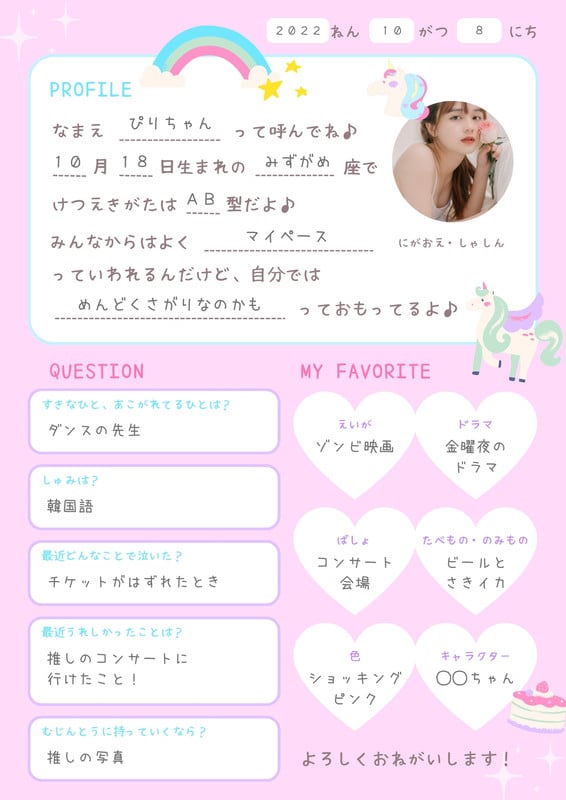 2022 ねん 10 がつ 8 にち
PROFILE
なまえ ぴりちゃん って呼んでね♪
10 月 18 日生まれの みずがめ 座で
けつえきがたは AB 型だよ♪
みんなからはよく マイペース
っていわれるんだけど、自分では
めんどくさがりなのかも っておもってるよ♪
にがおえ・しゃしん
QUESTION
すきなひと、あこがれてるひとは?
ダンスの先生
しゅみは?
韓国語
最近どんなことで泣いた?
チケットがはずれたとき
最近うれしかったことは?
推しのコンサートに
行けたこと!
むじんとうに持っていくなら?
推しの写真
MY FAVORITE
えいが
ゾンビ映画
ドラマ
金曜夜の
ドラマ
ばしょ
コンサート
会場
たべもの・のみもの
ビールと
さきイカ
色
ショッキング
ピンク
キャラクター
〇〇ちゃん
よろしくおねがいします!